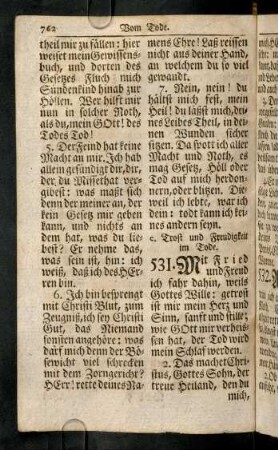 762 Vom Todt.
theil mir zu fällen: hier
weiset mein Gewissens-
buch, und deren des
Gesetzes Fluch mich
Sündenkind hinab zur
Höllen. Wer hilft mir
nun in solcher Noth,
als du, mein GOtt! des
Todes Tod!
5. Der Feind hat keine
Macht an mir. Ich hab
allein gesündigt dir, dir,
der du Missethat ver-
gibest: was maßt sich
denn der meiner an, der
kein Gesetz mir geben
kann, und nichts an
dem hat, was du lie-
best? Er nehme das,
was sein ist, hin: ich
weiß, daß ich des HEr-
ren bin.
6. Ich bin besprengt
mit Christi Blut, zum
Zeugniß, ich sey Christi
Gut, das Niemand
sonsten angehöre: was
darf mich denn der Bö-
sewicht viel schrecken
mit dem Zorngericht?
HErr! rette deines Na-
mens Ehre! Laß reissen
nicht aus deiner Hand,
an welchem du so viel
gewandt.
7. Nein, nein! du
hältst mich fest, mein
Heil! du läßst mich, dei-
nes Leibes Theil, in dei-
nen Wunden sicher
sitzen. Da spott ich aller
Macht und Noth, es
mag Gesetz, Höll oder
Tod auf mich herdon-
nern, oder blitzen. Die-
weil ich lebte, war ich
dein: todt kann ich kei-
nes andern seyn.
c. Trost und Freudigkeit
im Tode.
531. Mit Fried
und Freud
ich fahr dahin, weils
Gottes Wille: getrost
ist mir mein Herz und
Sinn, sanft und stille;
wie GOtt mir verheis-
sen hat, der Tod wird
mein Schlaf werden.
2. Das machet Chri-
stus, Gottes Sohn, der
treue Heiland, den du
mich,